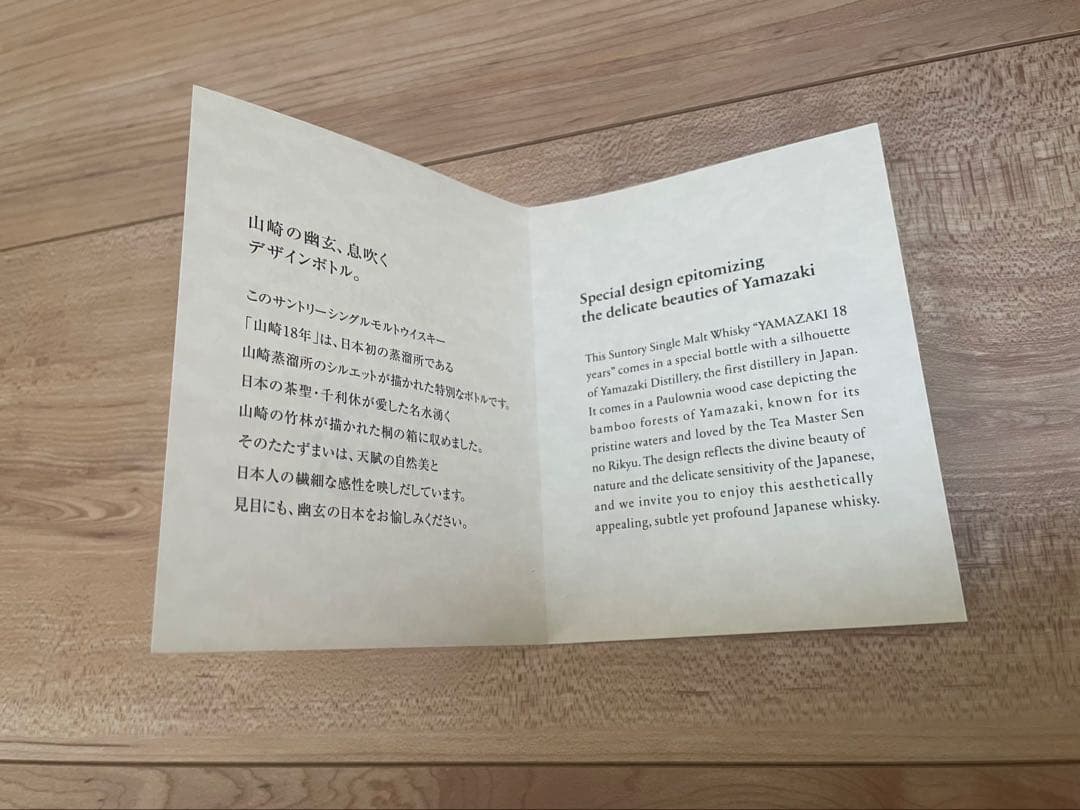 山崎の幽玄、息吹く
デザインボトル。
このサントリーシングルモルトウイスキー
「山崎18年」は、日本初の蒸溜所である
山崎蒸溜所のシルエットが描かれた特別なボトルです。
日本の茶聖・千利休が愛した名水湧く
山崎の竹林が描かれた桐の箱に収めました。
そのたたずまいは、天賦の自然美と
日本人の繊細な感性を映しだしています。
見目にも、幽玄の日本をお愉しみください。
Special design epitomizing
the delicate beauties of Yamazaki
This Suntory Single Malt Whisky “YAMAZAKI 18
years” comes in a special bottle with a silhouette
of Yamazaki Distillery, the first distillery in Japan.
It comes in a Paulownia wood case depicting the
bamboo forests of Yamazaki, known for its
pristine waters and loved by the Tea Master Sen
no Rikyu. The design reflects the divine beauty of
nature and the delicate sensitivity of the Japanese,
and we invite you to enjoy this aesthetically
appealing, subtle yet profound Japanese whisky.